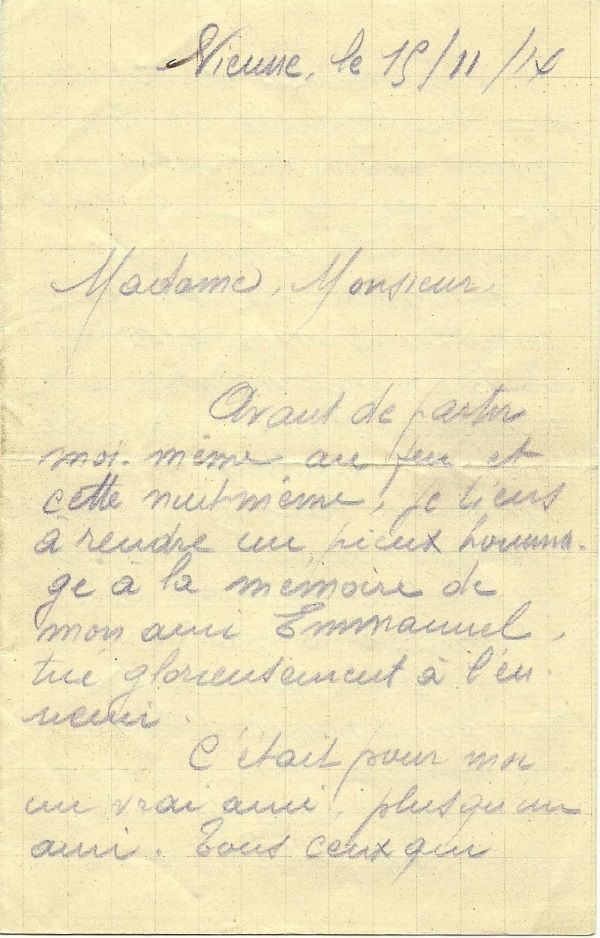 Vienne, le 15/11/14
Madame, Monsieur,
Avant de partir
moi-même au feu et
cette nuit même, je tiens
à rendre un pieux homma-
ge à la mémoire de
mon ami Emmanuel,
tué glorieusement à l'en-
nemi.
C'était pour moi
un vrai ami, plus qu'un
ami. Tous ceux qui